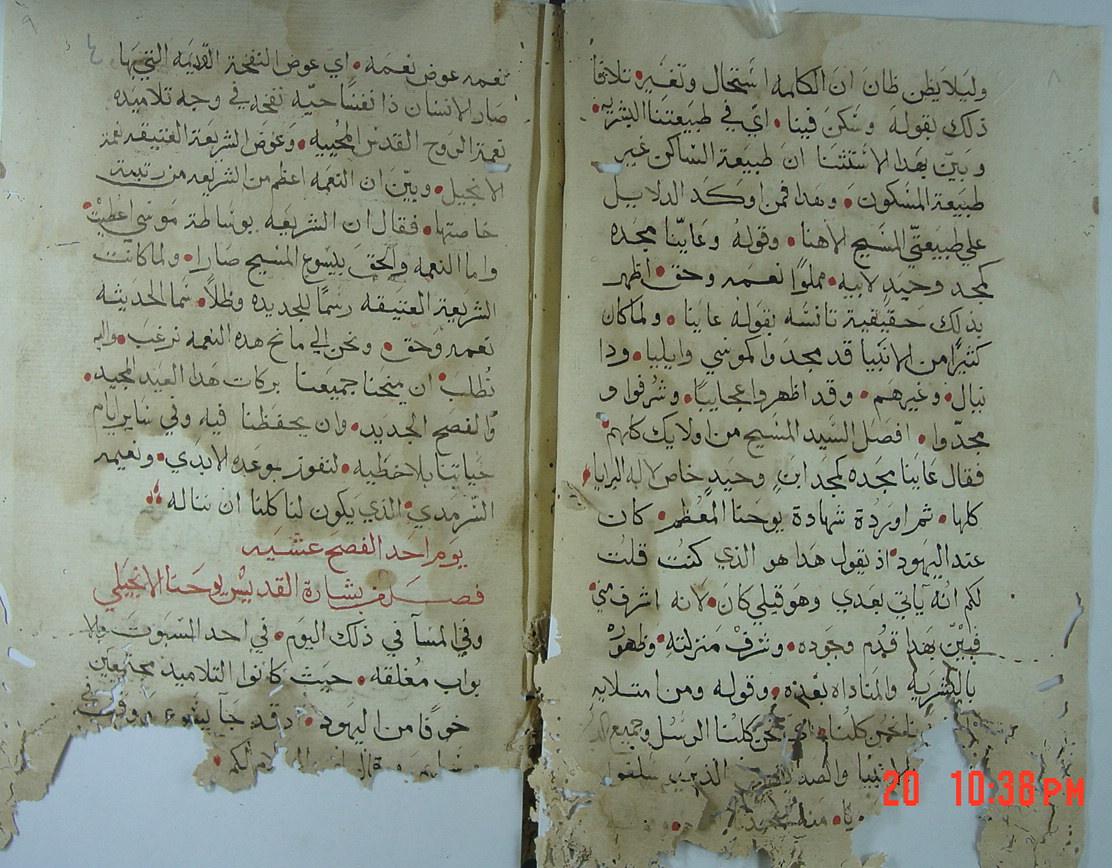 وليلا يظن ظان ان الكلمه استحال وتغير• تلافا
ذلك بقوله وسكن فينا• اي في طبيعتنا البشريه•
وبين بهدا الاستثنا ان طبيعة الساكن غير
طبيعة المسكون• وهدا فمن اوكد الدلايل
علي طبيعتي المسيح الاهنا• وقوله وعاينا مجده
كمجد وحيد لابيه• مملوا نعمه وحق• اظهر
بدلك حقيقية تانسه بقوله عاينا• ولما كان
كثيرا من الانبيا قد مجدوا كموسي وايليا• ودا
نيال• وغيرهم• وقد اظهروا عجايبا• وشرفوا و
مجدوا• افضل السيد المسيح من اولايك كلهم•
فقال عاينا مجده كمجد ابن وحيد خاص لاله البرايا
كلها• ثم اورد شهادة يوحنا المعظم• كان
عند اليهود• اذ يقول هدا هو الذي كنت قلت
لكم انه ياتي بعدي وهو قبلي كان• لانه اشرف مني•
فبين بهدا قدم وجوده• وشرف منزلته• وظهوره
بالبشريه والمناداه بعده• وقوله ومن امتلايه
نحن كلنا• اي نحن كلنا الرسل وجميع
الانبيا والصد الذين سلفوا
منه
نعمه عوض نعمه• اي عوض النفخة القديمه التي بها
صار الانسان ذا نفسا حيه نفخ في وجه تلاميده
نعمة الروح القدس المحييه• وعوض الشريعة العتيقه نعمة
الانجيل• وبين ان النعمه اعظم من الشريعه من رتبة
خاصتها• فقال ان الشريعه بوساطة موسي اعطيت•
واما النعمه والحق بيسوع المسيح صارا• ولما كانت
الشريعة العتيقه رسما للجديده وظلا• سما الحديثه
نعمه وحق• ونحن الي مانح هده النعمه نرغب• واليه
نطلب• ان يمنحنا جميعنا بركات هدا العيد المجيد•
والفصح الجديد• وان يحفظنا فيه وفي ساير ايام
حياتنا بلا خطيه• لنفوز بوعده الابدي• ونعيمه
السرمدي• الذي يكون لنا كلنا ان نناله
يوم احد الفصح عشيه
فصل من بشارة القديس يوحنا الانجيلي
وفي المسآ في ذلك اليوم• في احد السبوت والا
بواب مغلقه• حيث كانوا التلاميد مجتمعين
خوفا من اليهود• اد قد جآ يسوع ووقف في
لكم•
20 10:38PM